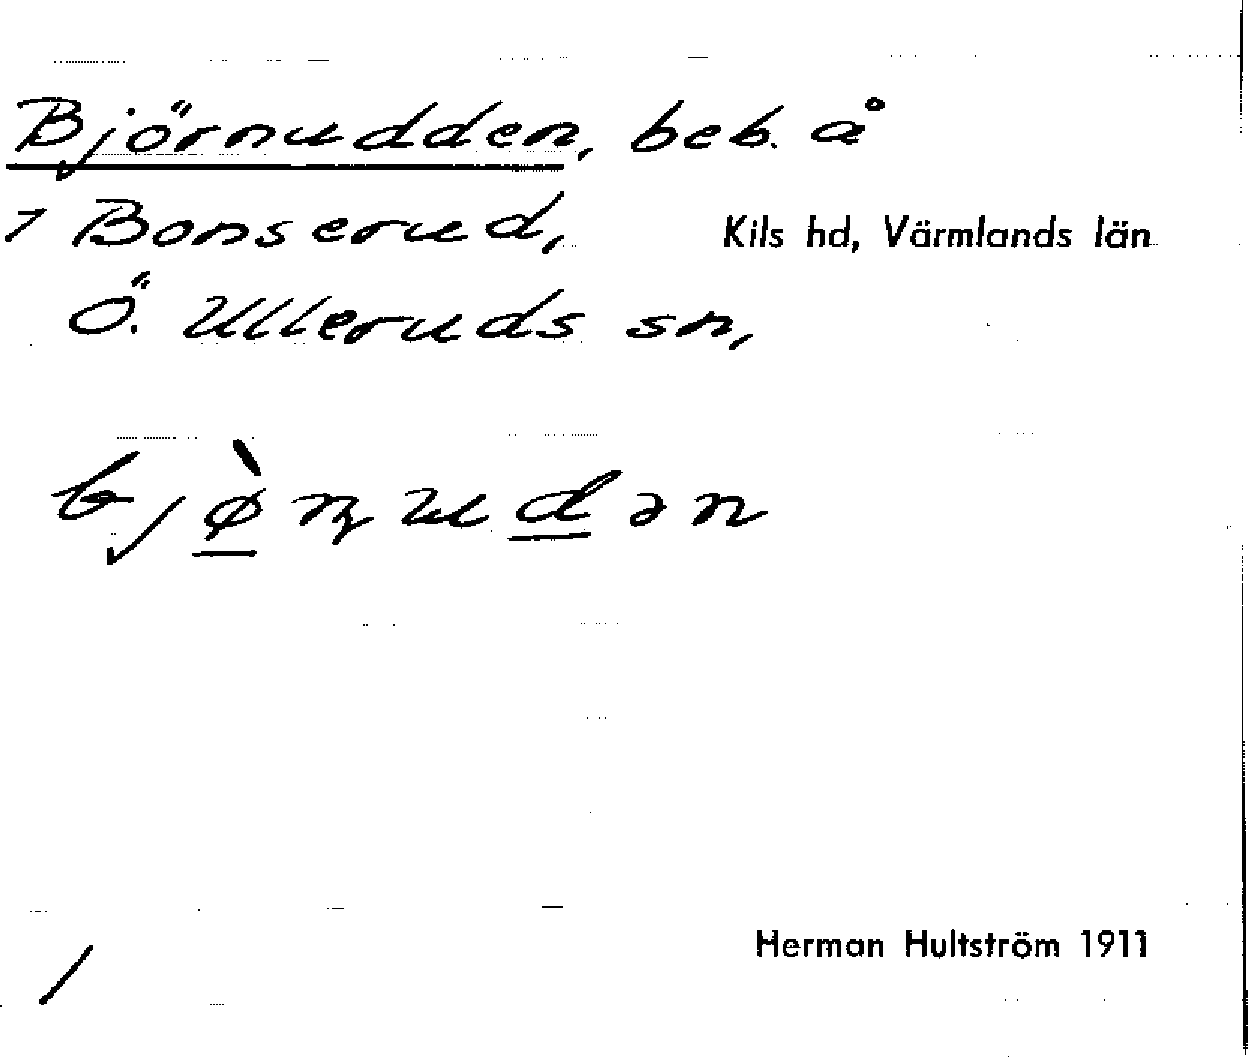 Björnudden, beb. å
1 Bonserud,
Kils hd, Värmlands län
Ö. Ulleruds sn,
bjø̀ɳudən
/
Herman Hultström 1911